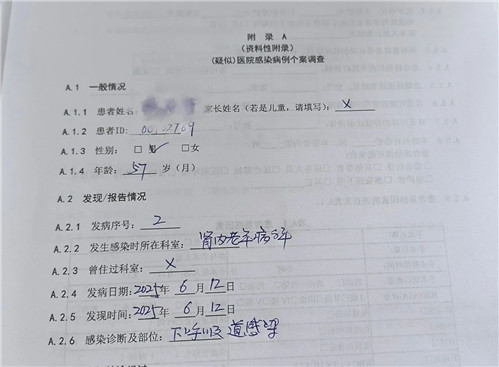 附 录 A
(资料性附录)
(疑似)医院感染病例个案调查
A.1 一般情况
A.1.1 患者姓名: 家长姓名(若是儿童,请填写): X
A.1.2 患者ID:
A.1.3 性别: □男✓ □女
A.1.4 年龄: 57 岁(月)
A.2 发现/报告情况
A.2.1 发病序号: 2
A.2.2 发生感染时所在科室: 肾内老年病科
A.2.3 曾住过科室: X
A.2.4 发病日期: 2025年 6 月 12 日
A.2.5 发现时间: 2025年 6 月 12 日
A.2.6 感染诊断及部位: 下呼吸道感染